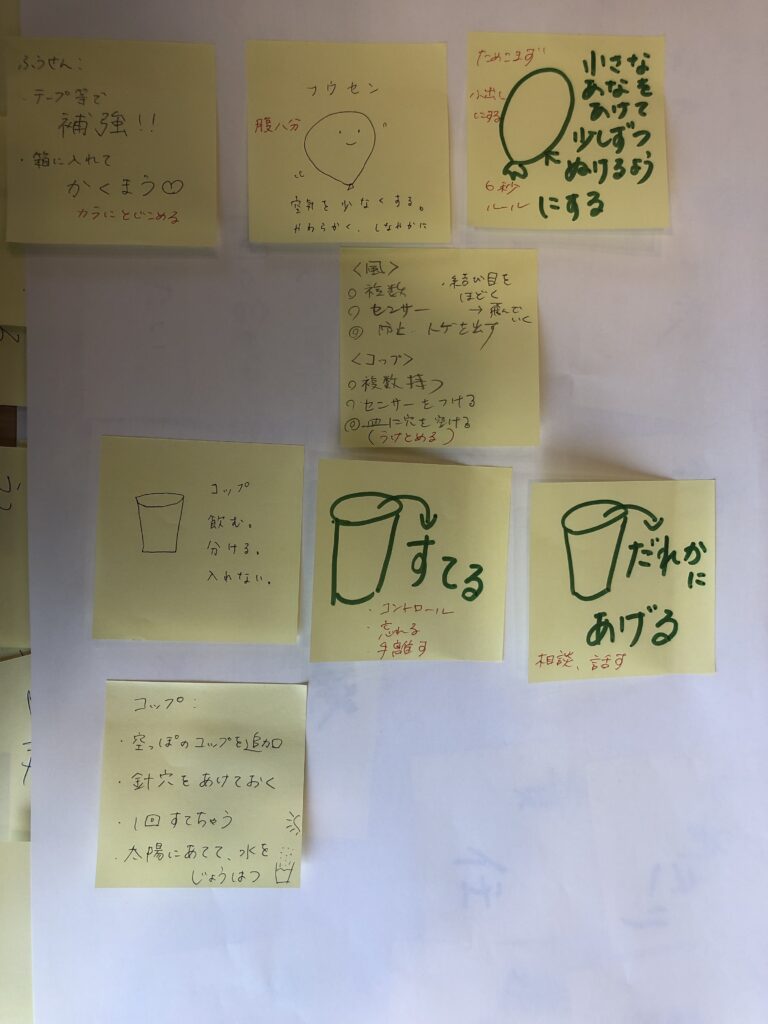 ふうせん：
・テープ等で
補強!!
・箱に入れて
かくまう♡
カラにとじこめる
フウセン
腹八分
空気を少なくする。
やわらかく、しなやかに
ためこまず
小出し
にする
小さな
あなを
あけて
少しずつ
ぬけるよう
にする
6秒
ルール
<風>
○複数
○センサー
◎防止 トゲを出す
・結び目を
ほどく
→飛んで
いく
<コップ>
○複数持つ
○センサーをつける
◎皿に穴を空ける
(うけとめる)
コップ
飲む。
分ける。
入れない。
すてる
・コントロール
・忘れる
・手離す
だれか
に
あげる
相談、話す
コップ：
・空っぽのコップを追加
・針穴をあけておく
・1回すてちゃう
・太陽にあてて、水を
じょうはつ